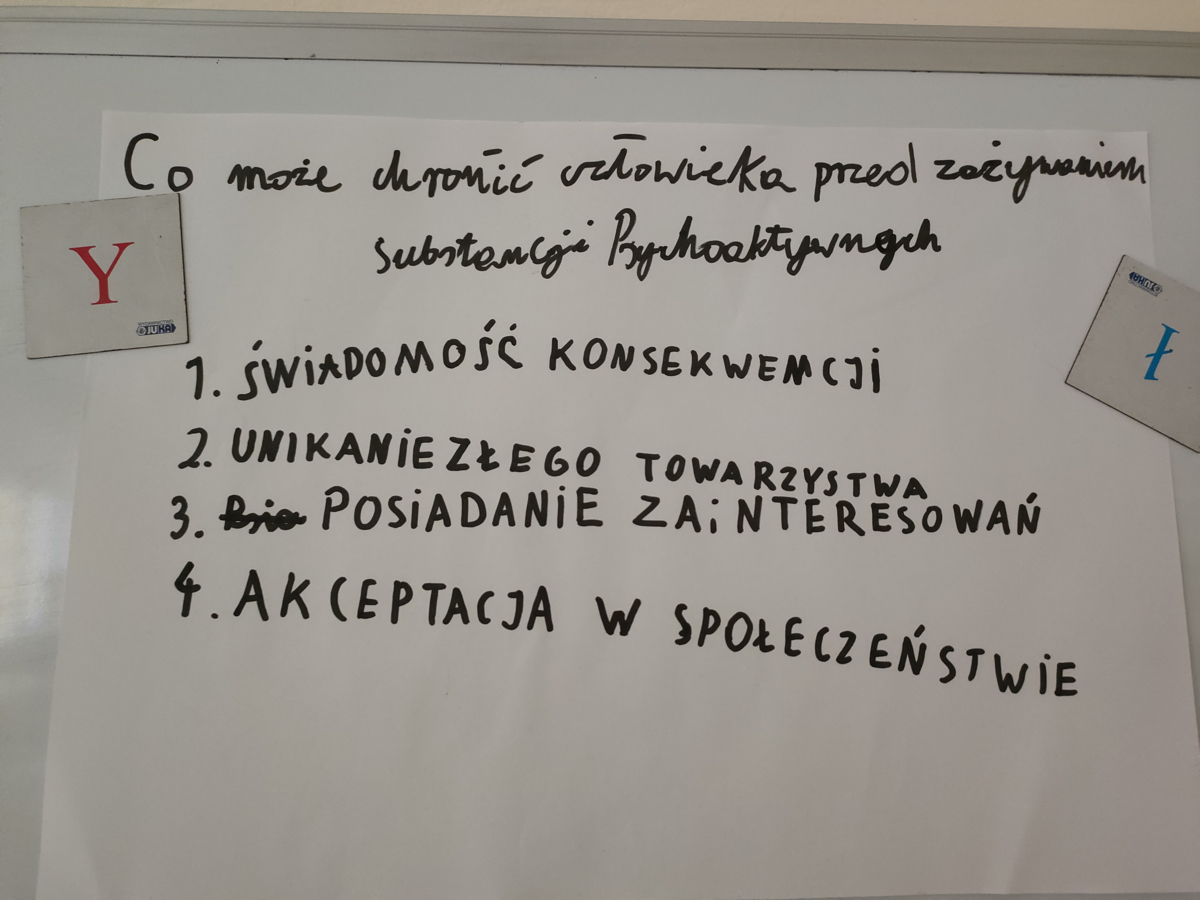 Co może chronić człowieka przed zażywaniem
substancji Psychoaktywnych
Y
WYDAWNICTWO
JUKA
JUKA
ł
1. ŚWIADOMOŚĆ KONSEKWEMCJI
2. UNIKANIE ZŁEGO TOWARZYSTWA
3. POSIADANIE ZAINTERESOWAŃ
4. AKCEPTACJA W SPOŁECZEŃSTWIE